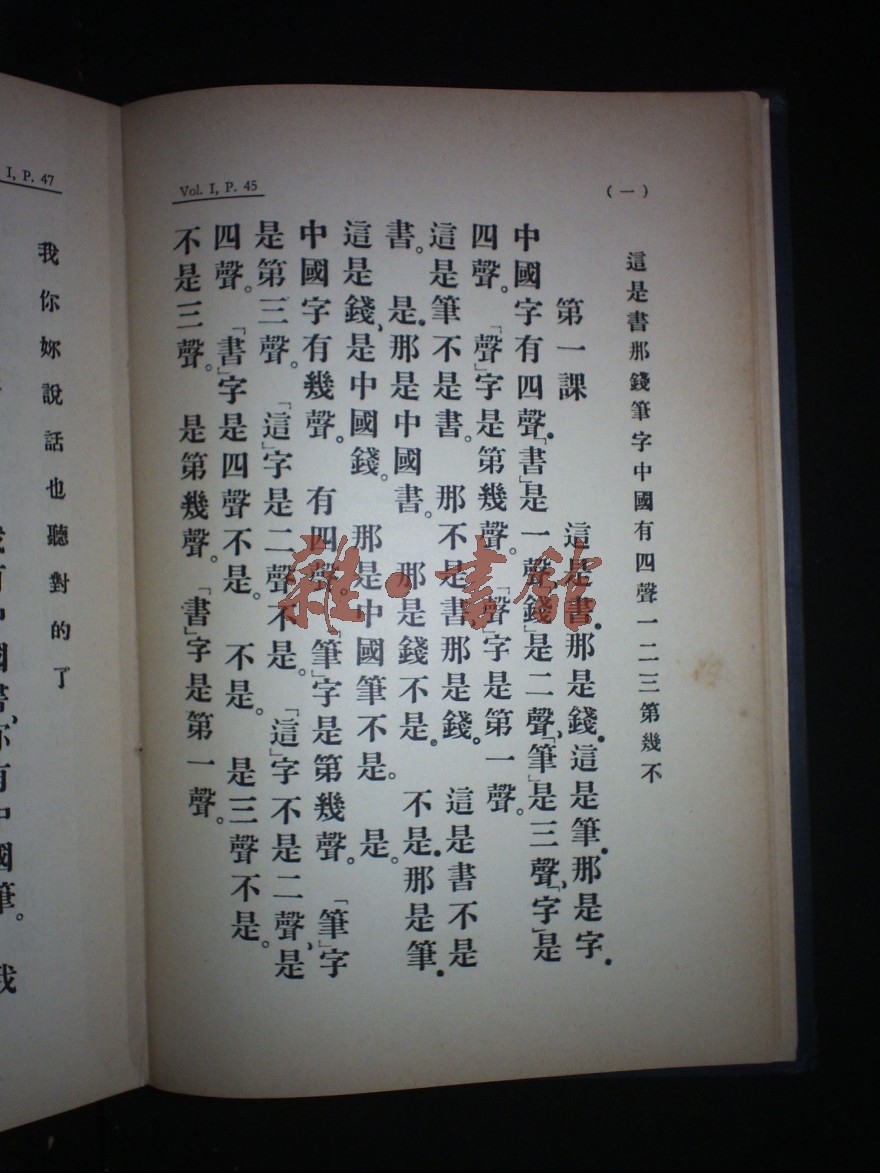 (一)
Vol. I, P. 45
這是書那錢筆字中國有四聲一二三第幾不
第一課　　這是書.那是錢.這是筆.那是字.
中國字有四聲.「書」是一聲、「錢」是二聲、「筆」是三聲、「字」是
四聲。「聲」字是第幾聲。「聲」字是第一聲。
這是筆不是書。　那不是書、那是錢。　這是書不是
書。　是.那是中國書。　那是錢不是。　不是.那是筆.
這是錢、是中國錢。　那是中國筆不是。　是。
中國字有幾聲。　有四聲。「筆」字是第幾聲。　「筆」字
是第三聲。　「這」字是二聲不是。　「這」字不是二聲、是
四聲。　「書」字是四聲不是。　不是。　是三聲不是。
不是三聲。　是第幾聲。　「書」字是第一聲。
I, P. 47
我你妳說話也聽對的了
有中國書、你有中國筆。　我
雜·書館